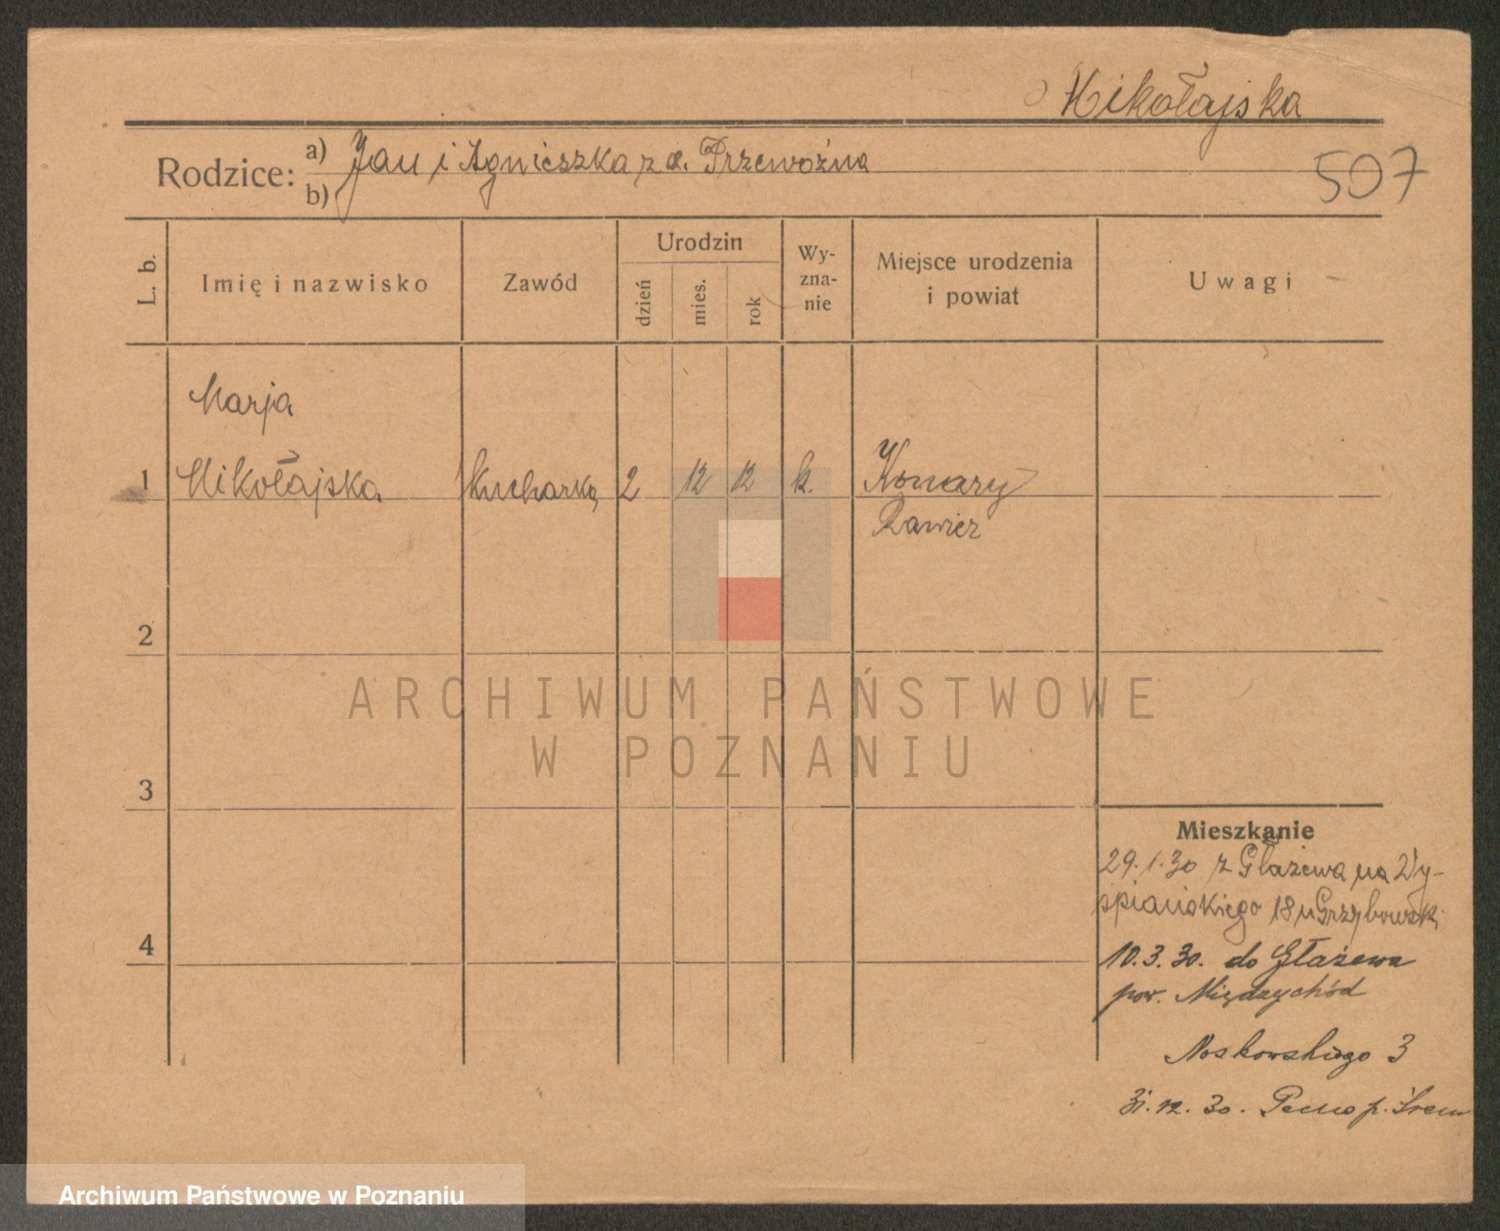 Mikołajska
Rodzice:
a) Jan i Agnieszka z d. Przewoźna
b)
507
L. b.
Imię i nazwisko
Zawód
Urodzin
dzień
mies.
rok
Wy-
zna-
nie
Miejsce urodzenia
i powiat
Uwagi
Marja
1 Mikołajska kucharka 2 12 12 k. Konary
Rawicz
2
3
4
Mieszkanie
29.1.30 z Głażewa na Wy-
spiańskiego 18 u Grzybowsk.
10.3.30. do Głażewa
pow. Międzychód
Noskowskiego 3
31.12.30. p. Śrem
ARCHIWUM PAŃSTWOWE
W POZNANIU
Archiwum Państwowe w Poznaniu